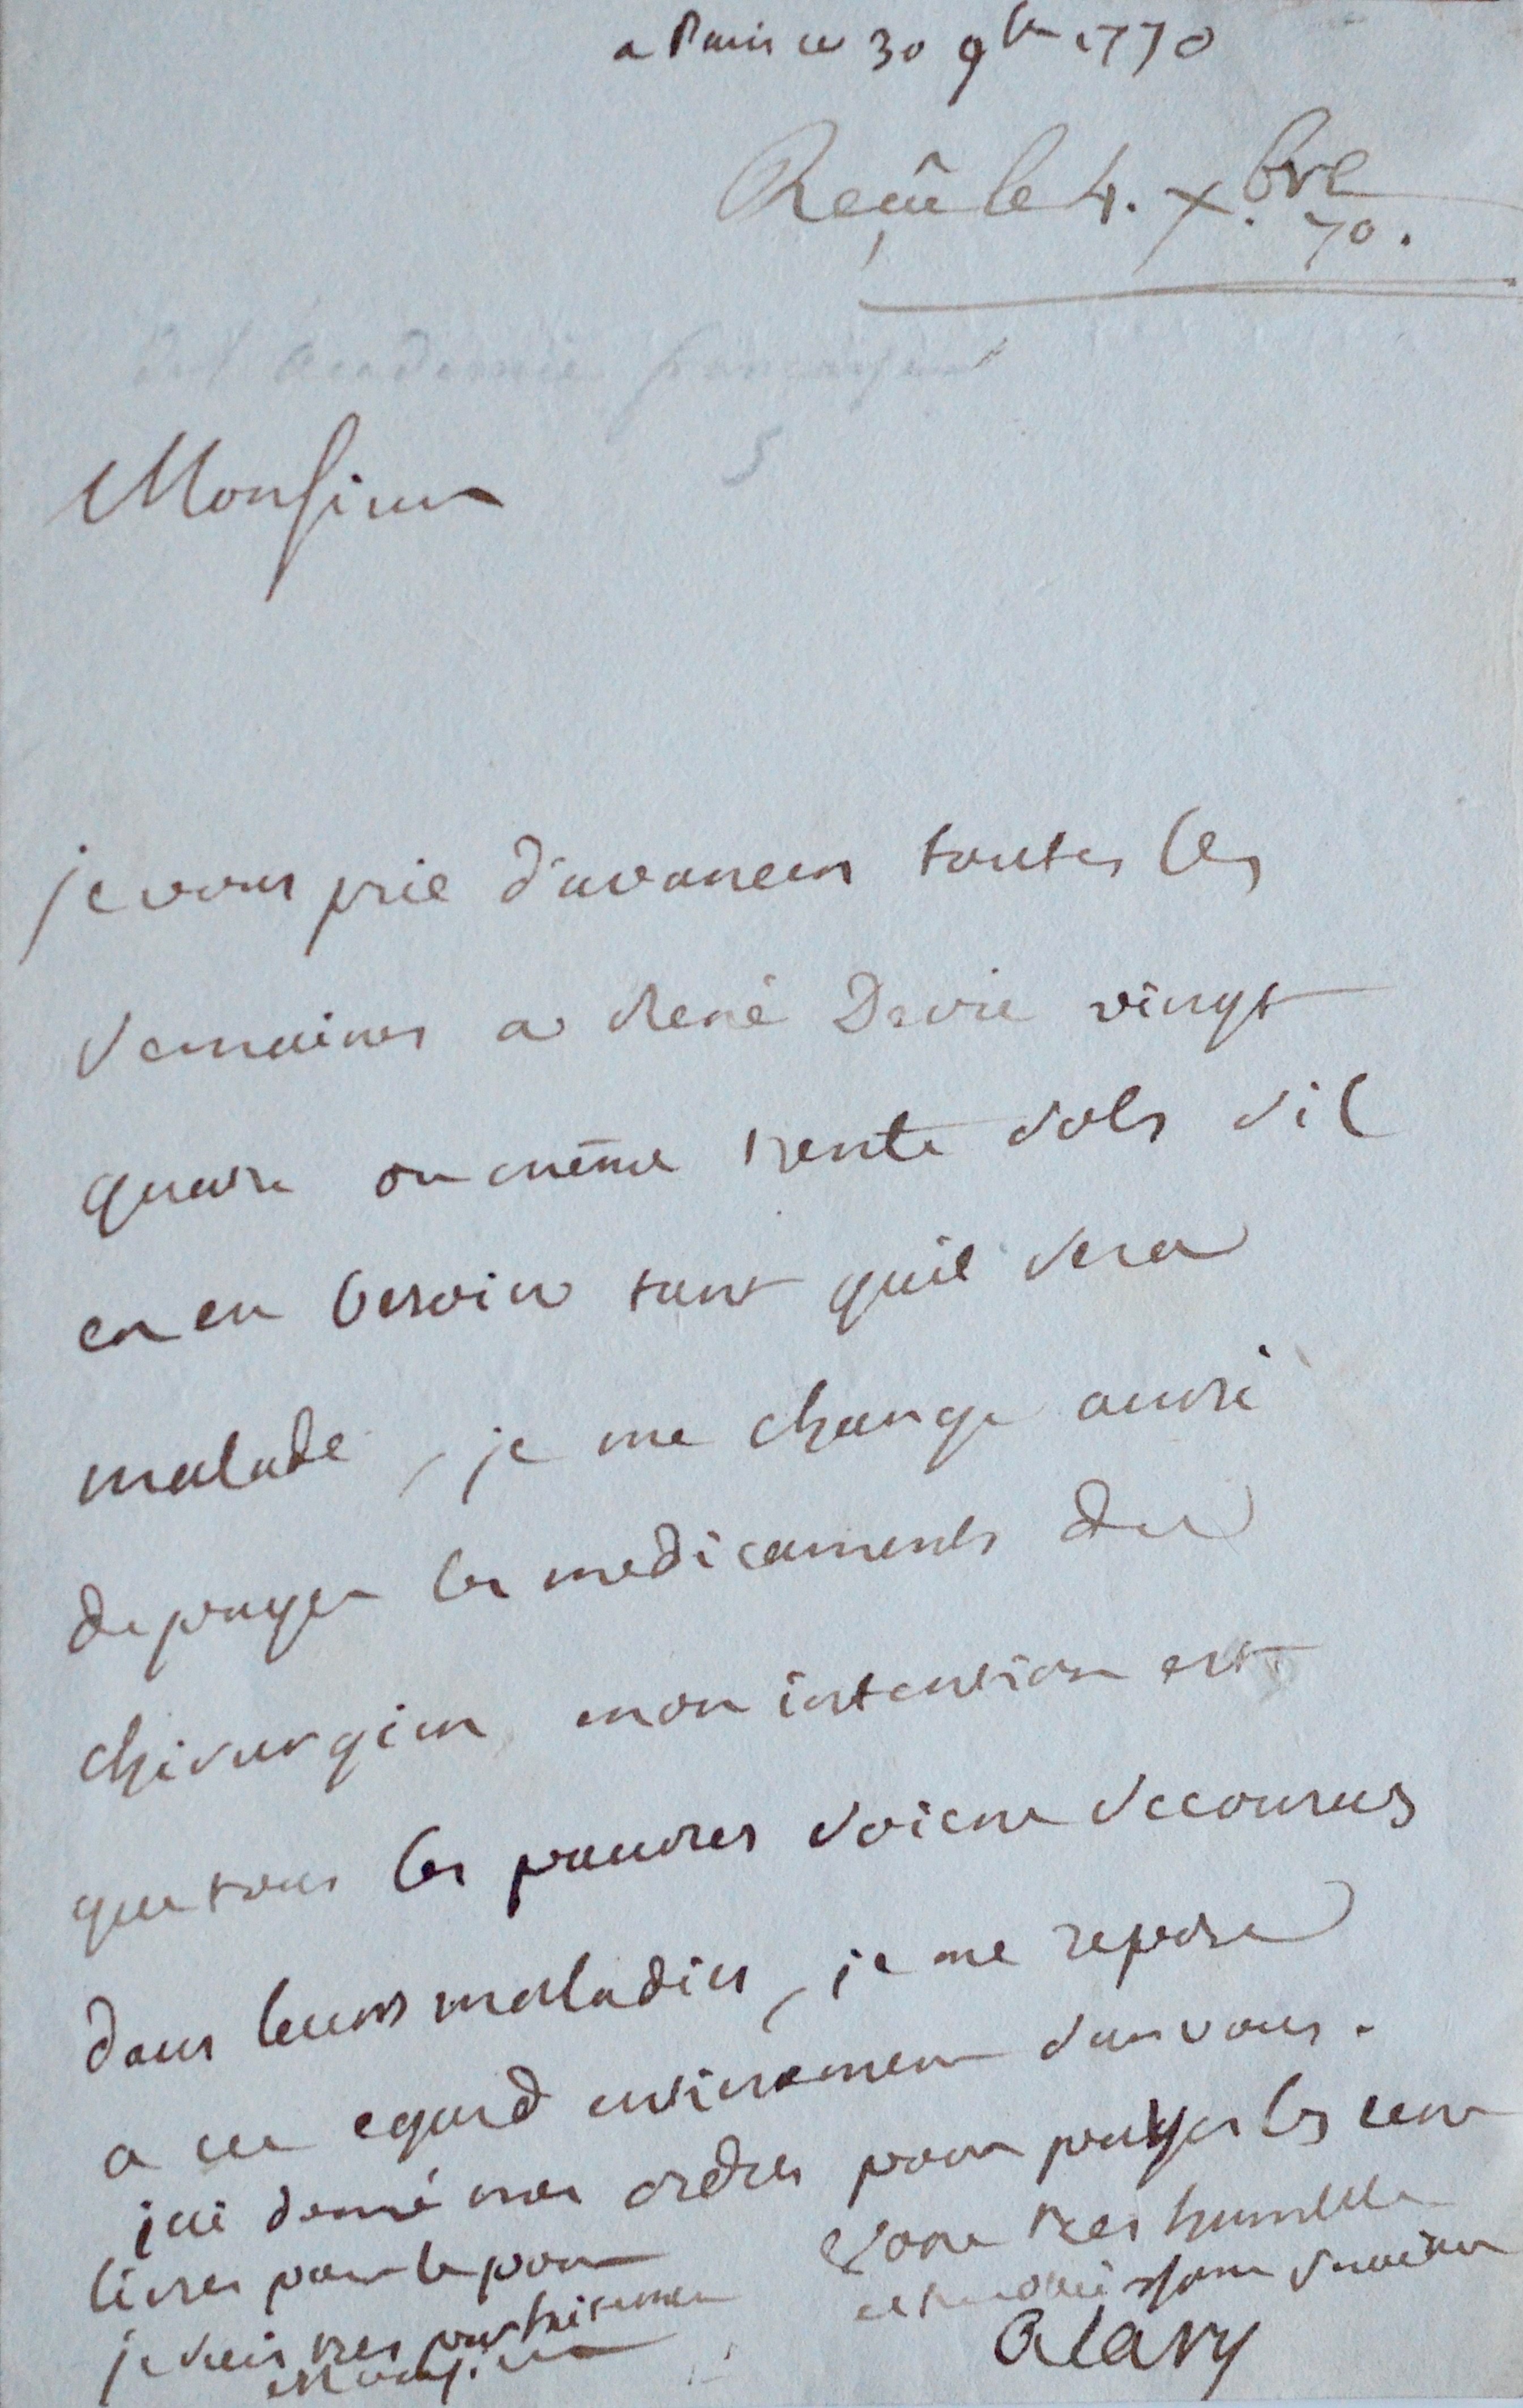 a Paris ce 30 9bre 1770
Reçû le 4. Xbre 70.
de l'academie françoise
5
Monsieur
je vous prie d'avancer toutes les
semaines a René Devie vingt
quatre ou même trente sols s'il
en en besoin tant quil sera
malade, je me charge aussi
de payer les medicaments du
chirurgien mon intention est
que tous les pauvres soient secourus
dans leurs maladies, je me repose
a cet egard entierement sur vous.
j'ai donné mes ordres pour payer les cent
livres pour le pour
je suis tres parfaitement
Monsieur
Votre tres humble
et tres obeissant serviteur
Alary